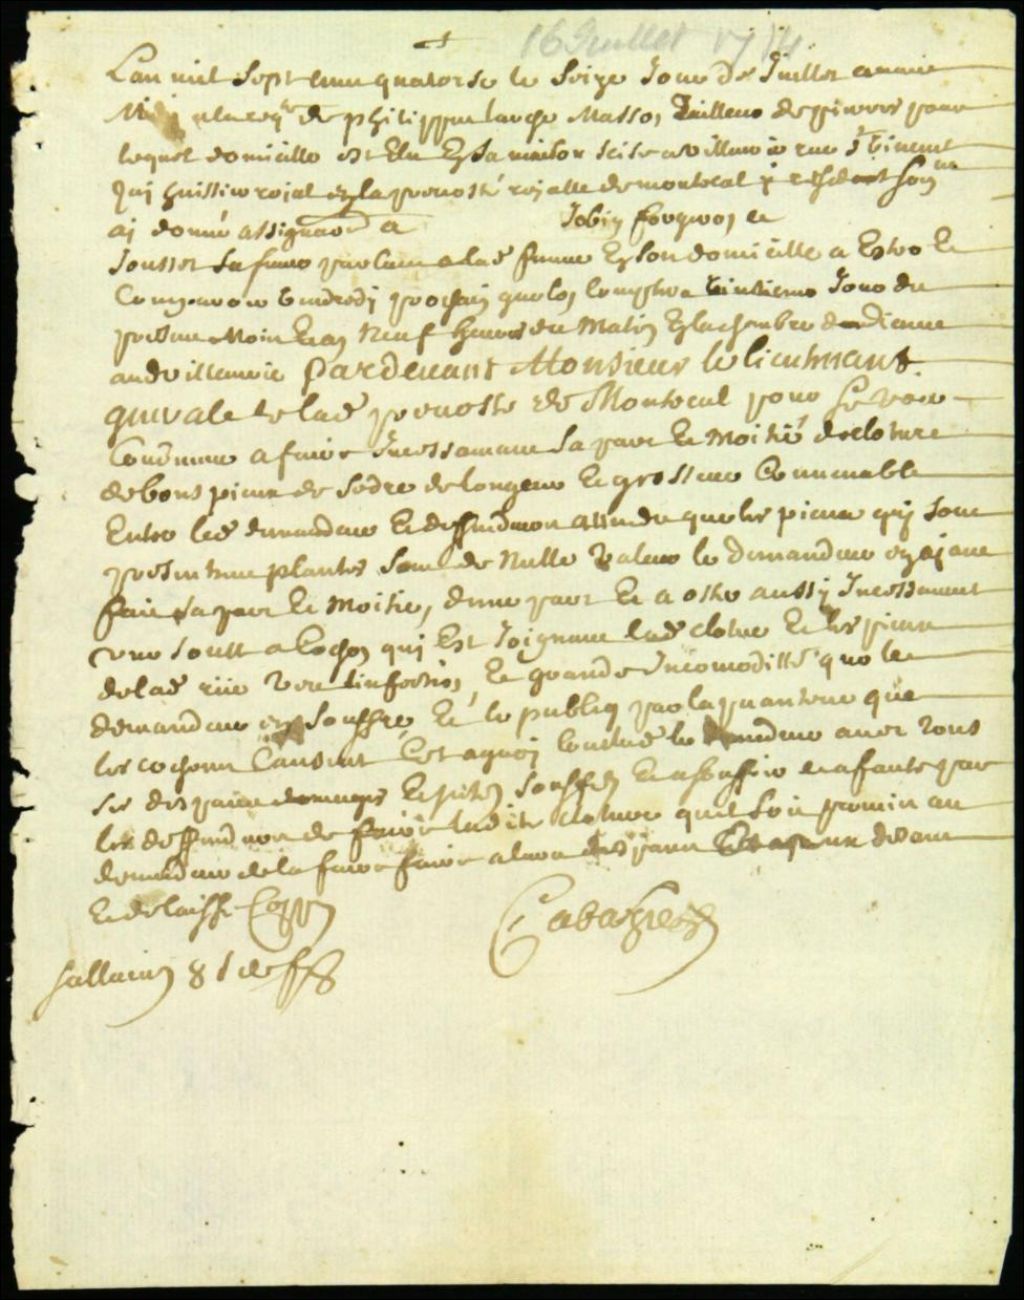 16 Juillet 1714
Lan mil Sept cens quatorse le Seize Jour de Juillet avant
Midi a la reqte de philippe Masson tailleur de pierres pour
lequel domicille est Elu En sa maison scise a villemarie rue St Vincent
Jaj huissier roial En la prevosté roialle de montreal y residant Sousne
aj donné assignaon a tobin fourgeos et
Sa fume parlant a lad fume En son domicille a Estre Et
Comparoir Vendredj prochain quelon Comptera Vintieme Jour du
presant Mois Et an Neuf heures du Matin En la chambre daudiance
aud villemarie Pardevant Monsieur le lieutenant
gnerale de lad prevosté de Montreal pour Se voir
Condemner a faire Incessament sa part Et Moitié de cloture
de bons pieux de Sedre de longeur Et grosseur Convenable
Entre led demandeur Et deffendeur attendu que les pieux qui sont
presentement plantes Sont de Nulle Valeur le demandeur en ajant
fait sa part Et Moitie, dune part Et a oster aussy Incessament
une soutt a Cochon qui Est Joignant lad cloture Et les pieux
de lad rüe Veu linfection, Et grande Incomoditté que le
demandeur en Souffre, Et le publiq par la puanteur que
les cochons Causent Cest aquoj Conclud le demandeur avec tous
Ses despans domages Et Souffers Et a souffrir Et a faute par
les deffendeur de faire ladite cloture quil soit permis au
demandeur de la faire faire a leurs despans
Et delaissé Coppie
Cabazie
Sallaire 8 s de f